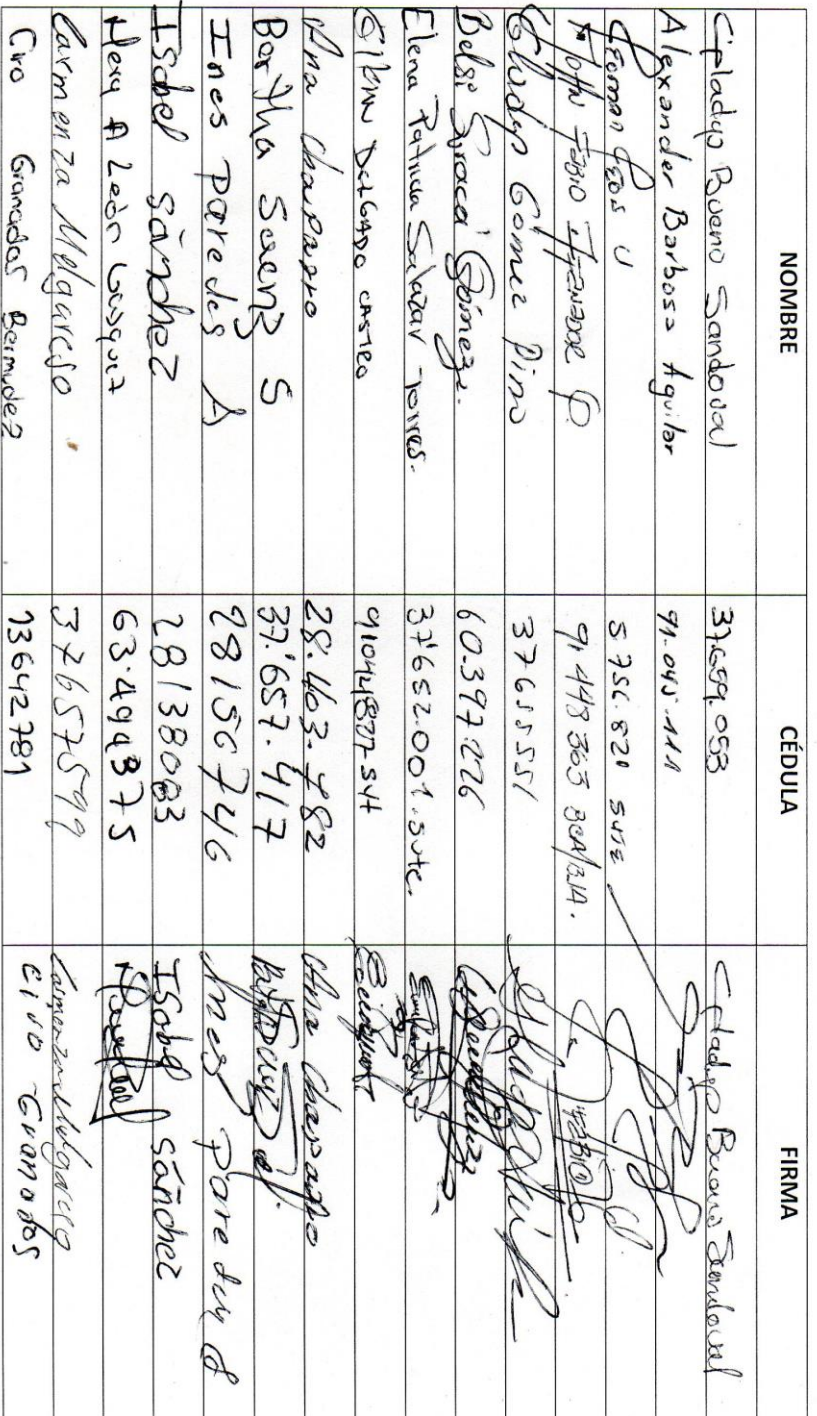 NOMBRE CÉDULA FIRMA
Gladys Bueno Sandoval 37.659.053 Gladys Bueno Sandoval
Alexander Barbosa Aguilar 91.045.111
5756.820 SUTE
FABIO 91.448363 BCA/BJA. FABIO
Gladys Gómez Pino 37655551
Belsi Suroca Gómez. 60.397.226
Elena Patricia Salazar Torres. 37'652.001.sute.
DELGADO CASTRO 91044877-SUT
Ana Chaparro 28.463.782 Ana Chaparro
Bertha Saenz S 37.657.417
Ines Paredes A 28156746 Ines Paredes
Isabel Sánchez 28138083 Isabel Sánchez
A León 63.494375
Carmenza Melgarejo 37657599 Carmenza Melgarejo
Ciro Granados Bermudez 13642781 Ciro Granados